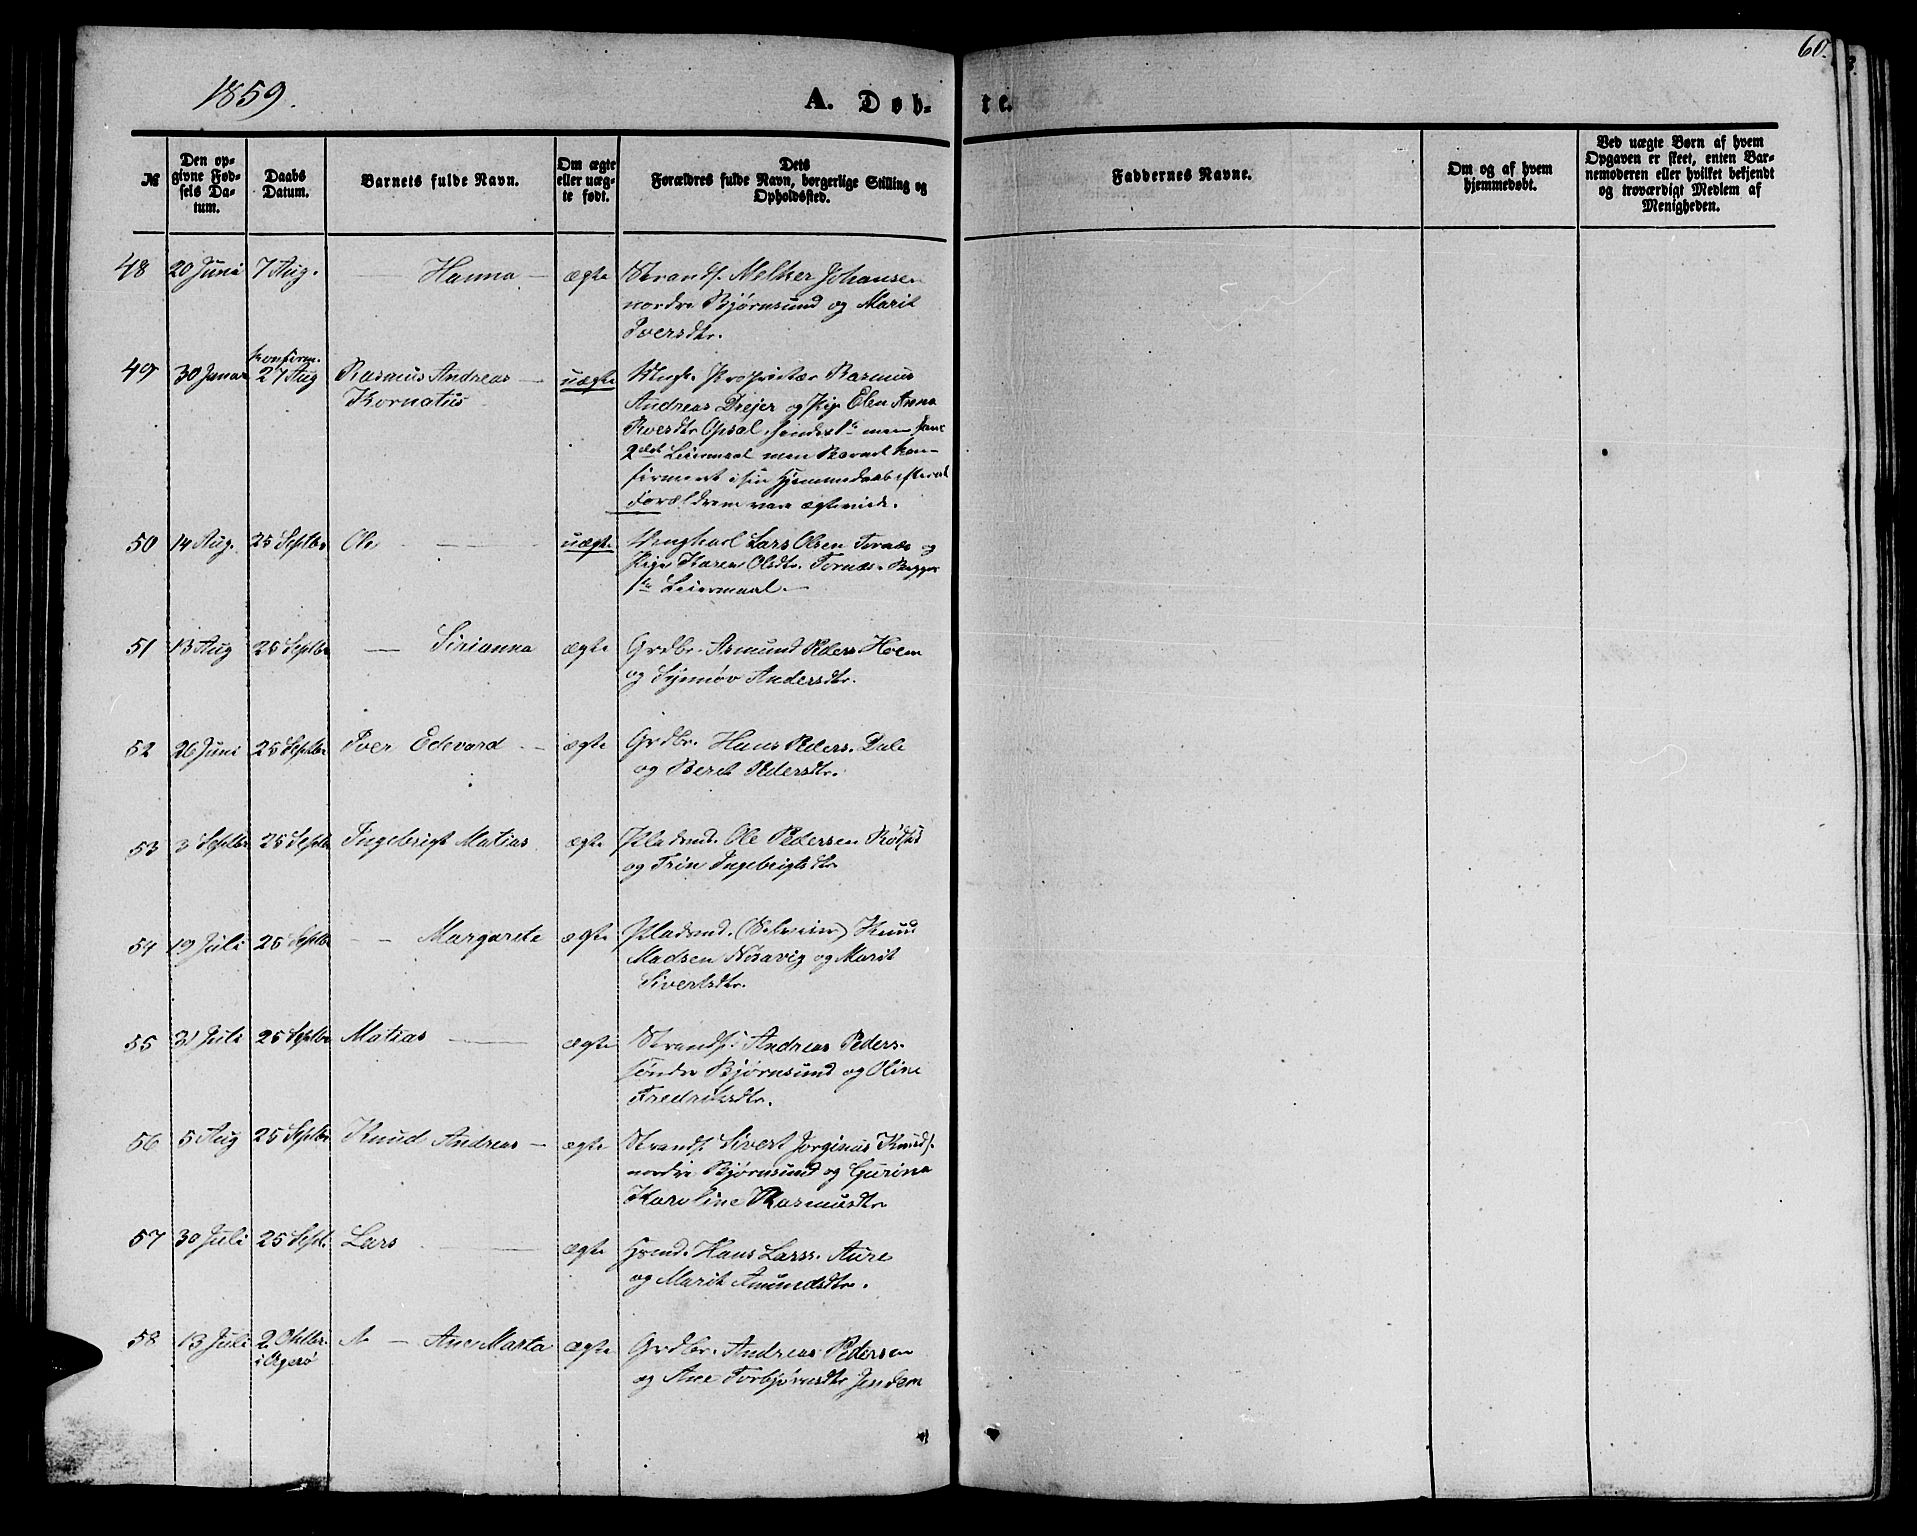 1859.
A. Døb-
te.
60.
№
Den op-
givne Fød-
sels Da-
tum.
Daabs
Datum.
Barnets fulde Navn.
Om ægte
eller uæg-
te født.
Dets
Forældres fulde Navn, borgerlige Stilling og
Opholdssted.
Faddernes Navne.
Om og af hvem
hjemmedøbt.
Ved uægte Børn af hvem
Opgaven er skeet, enten Bar-
nemoderen eller hvilket bekjendt
og troværdigt Medlem af
Menigheden.
48 20 Juni 7 Aug. — Hanna — ægte Strands. Melker Johansen
nordre Bjørnsund og Marit
Iversdtr.
konfirm.
49 30 Januar 27 Aug Rasmus Andreas — uægte Ungk. Proprietær Rasmus
Kornatus Andreas Drejer og Pige Elen Anna
Iversdtr Opsal, hendes 1ste men hans
2det Leiermaal men Barnet kon-
firmeret i sin Hjemmedaab efterat
Forældrene vare ægteviede.
50 14 Aug. 25 Septbr Ole — uægte Ungkarl Lars Olsen Tornæs og
Pige Karen Olsdtr. Tornæs Begges
1ste Leiermaal. —
51 13 Aug 25 Septbr — Sirianna ægte Grdbr. Asmund Peders. Hoem
og Synnøv Andersdtr.
52 26 Juni 25 Septbr Iver Edevard — ægte Grdbr. Hans Peders. Dale
og Beret Pedersdtr.
53 3 Septbr 25 Septbr Ingebrigt Matias ægte Pladsmd. Ole Pedersen
og Trin Ingebrigtsdtr
54 19 Juli 25 Septbr — Margarete ægte Pladsmd. Knud
Madsen og Marit
Sivertsdtr.
55 31 Juli 25 Septbr Matias — ægte Strands. Andreas Peders.
søndre Bjørnsund og Oline
Fredriksdtr.
56 5 Aug 25 Septbr Knud Andreas — ægte Strands. Sivert Jorginus Knuds.
nordre Bjørnsund og Gurina
Karoline Rasmusdtr
57 30 Juli 25 Sept. Lars — ægte Hsmd. Hans Larss. Aure
og Marit Amundsdtr.
58 13 Juli 2 Oktbr. — Ane Marta ægte Grdbr. Andreas Pedersen
i Agerø og Ane Torbjørnsdtr Jendem